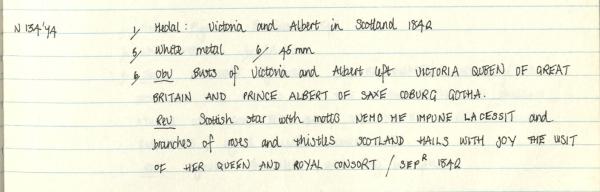 N 134'44 1/ Medal: Victoria and Albert in Scotland 1842
5/ White metal 6/ 45 mm
8/ Obv Busts of Victoria and Albert left VICTORIA QUEEN OF GREAT
BRITAIN AND PRINCE ALBERT OF SAXE COBURG GOTHA.
Rev Scottish star with motto NEMO ME IMPUNE LACESSIT and
branches of roses and thistles SCOTLAND HAILS WITH JOY THE VISIT
OF HER QUEEN AND ROYAL CONSORT / SEPR 1842